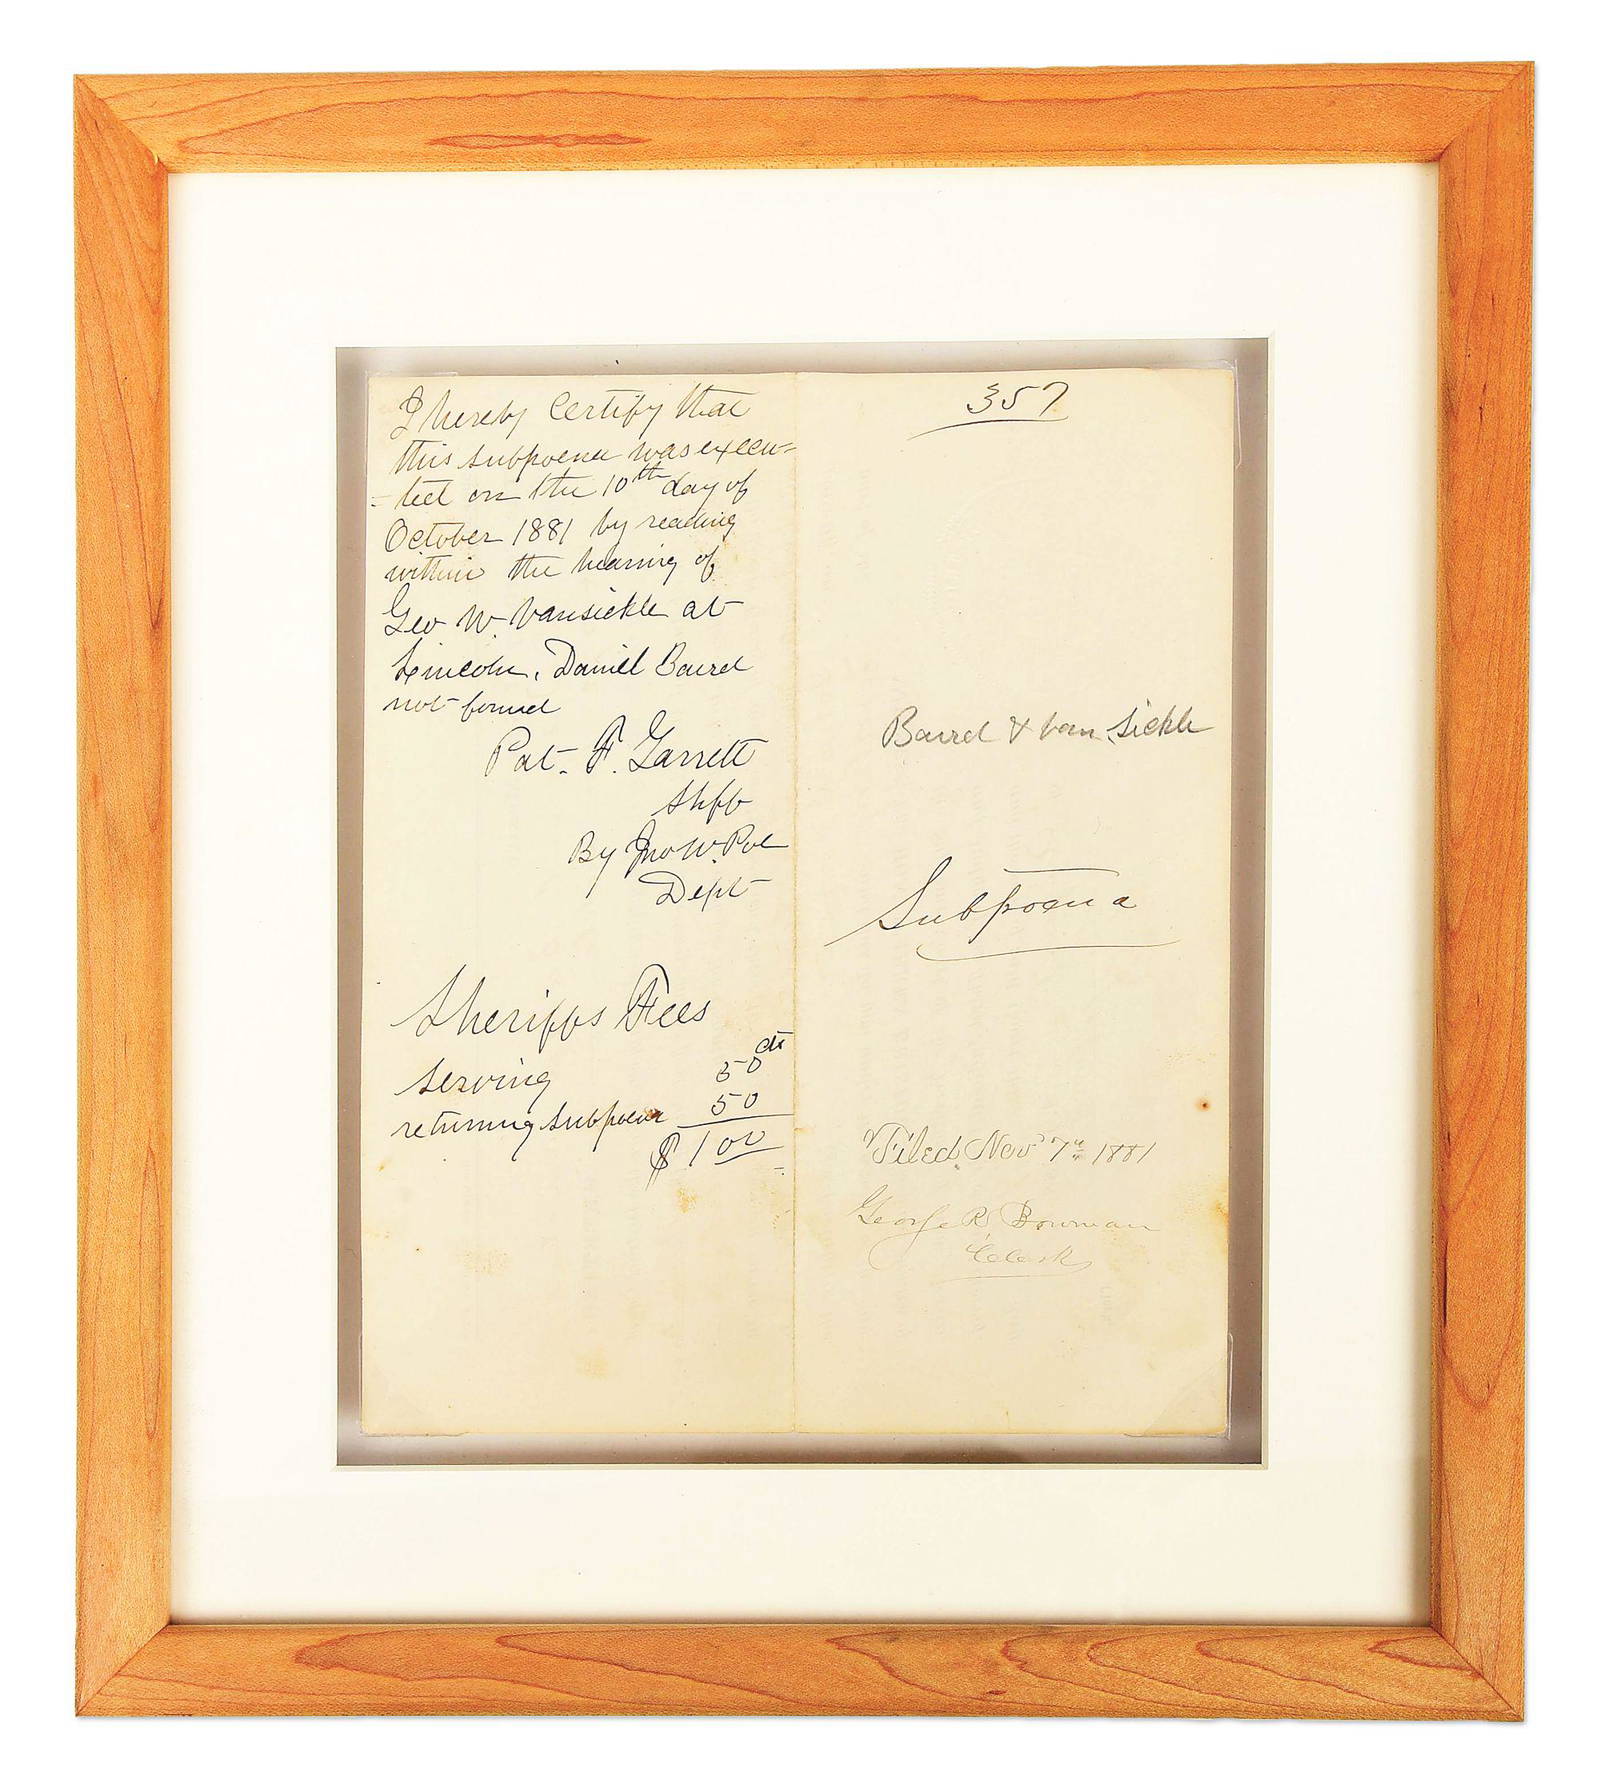 I hereby certify that
this subpoena was execu-
-ted on the 10th day of
October 1881 by reading
within the hearing of
Geo W. Vansickle at
Lincoln. Daniel Baird
not found
Pat. F. Garrett
Shff
By Jno W. Poe
Dept
Sheriffs Fees
cts
serving 50
returning subpoena 50
$ 1 00
357
Baird & Van Sickle
Subpoena
Filed Nov 7th 1881
George R Bowman
Clerk